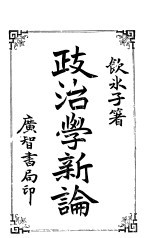 飲冰子著
政治學新論
廣智書局印